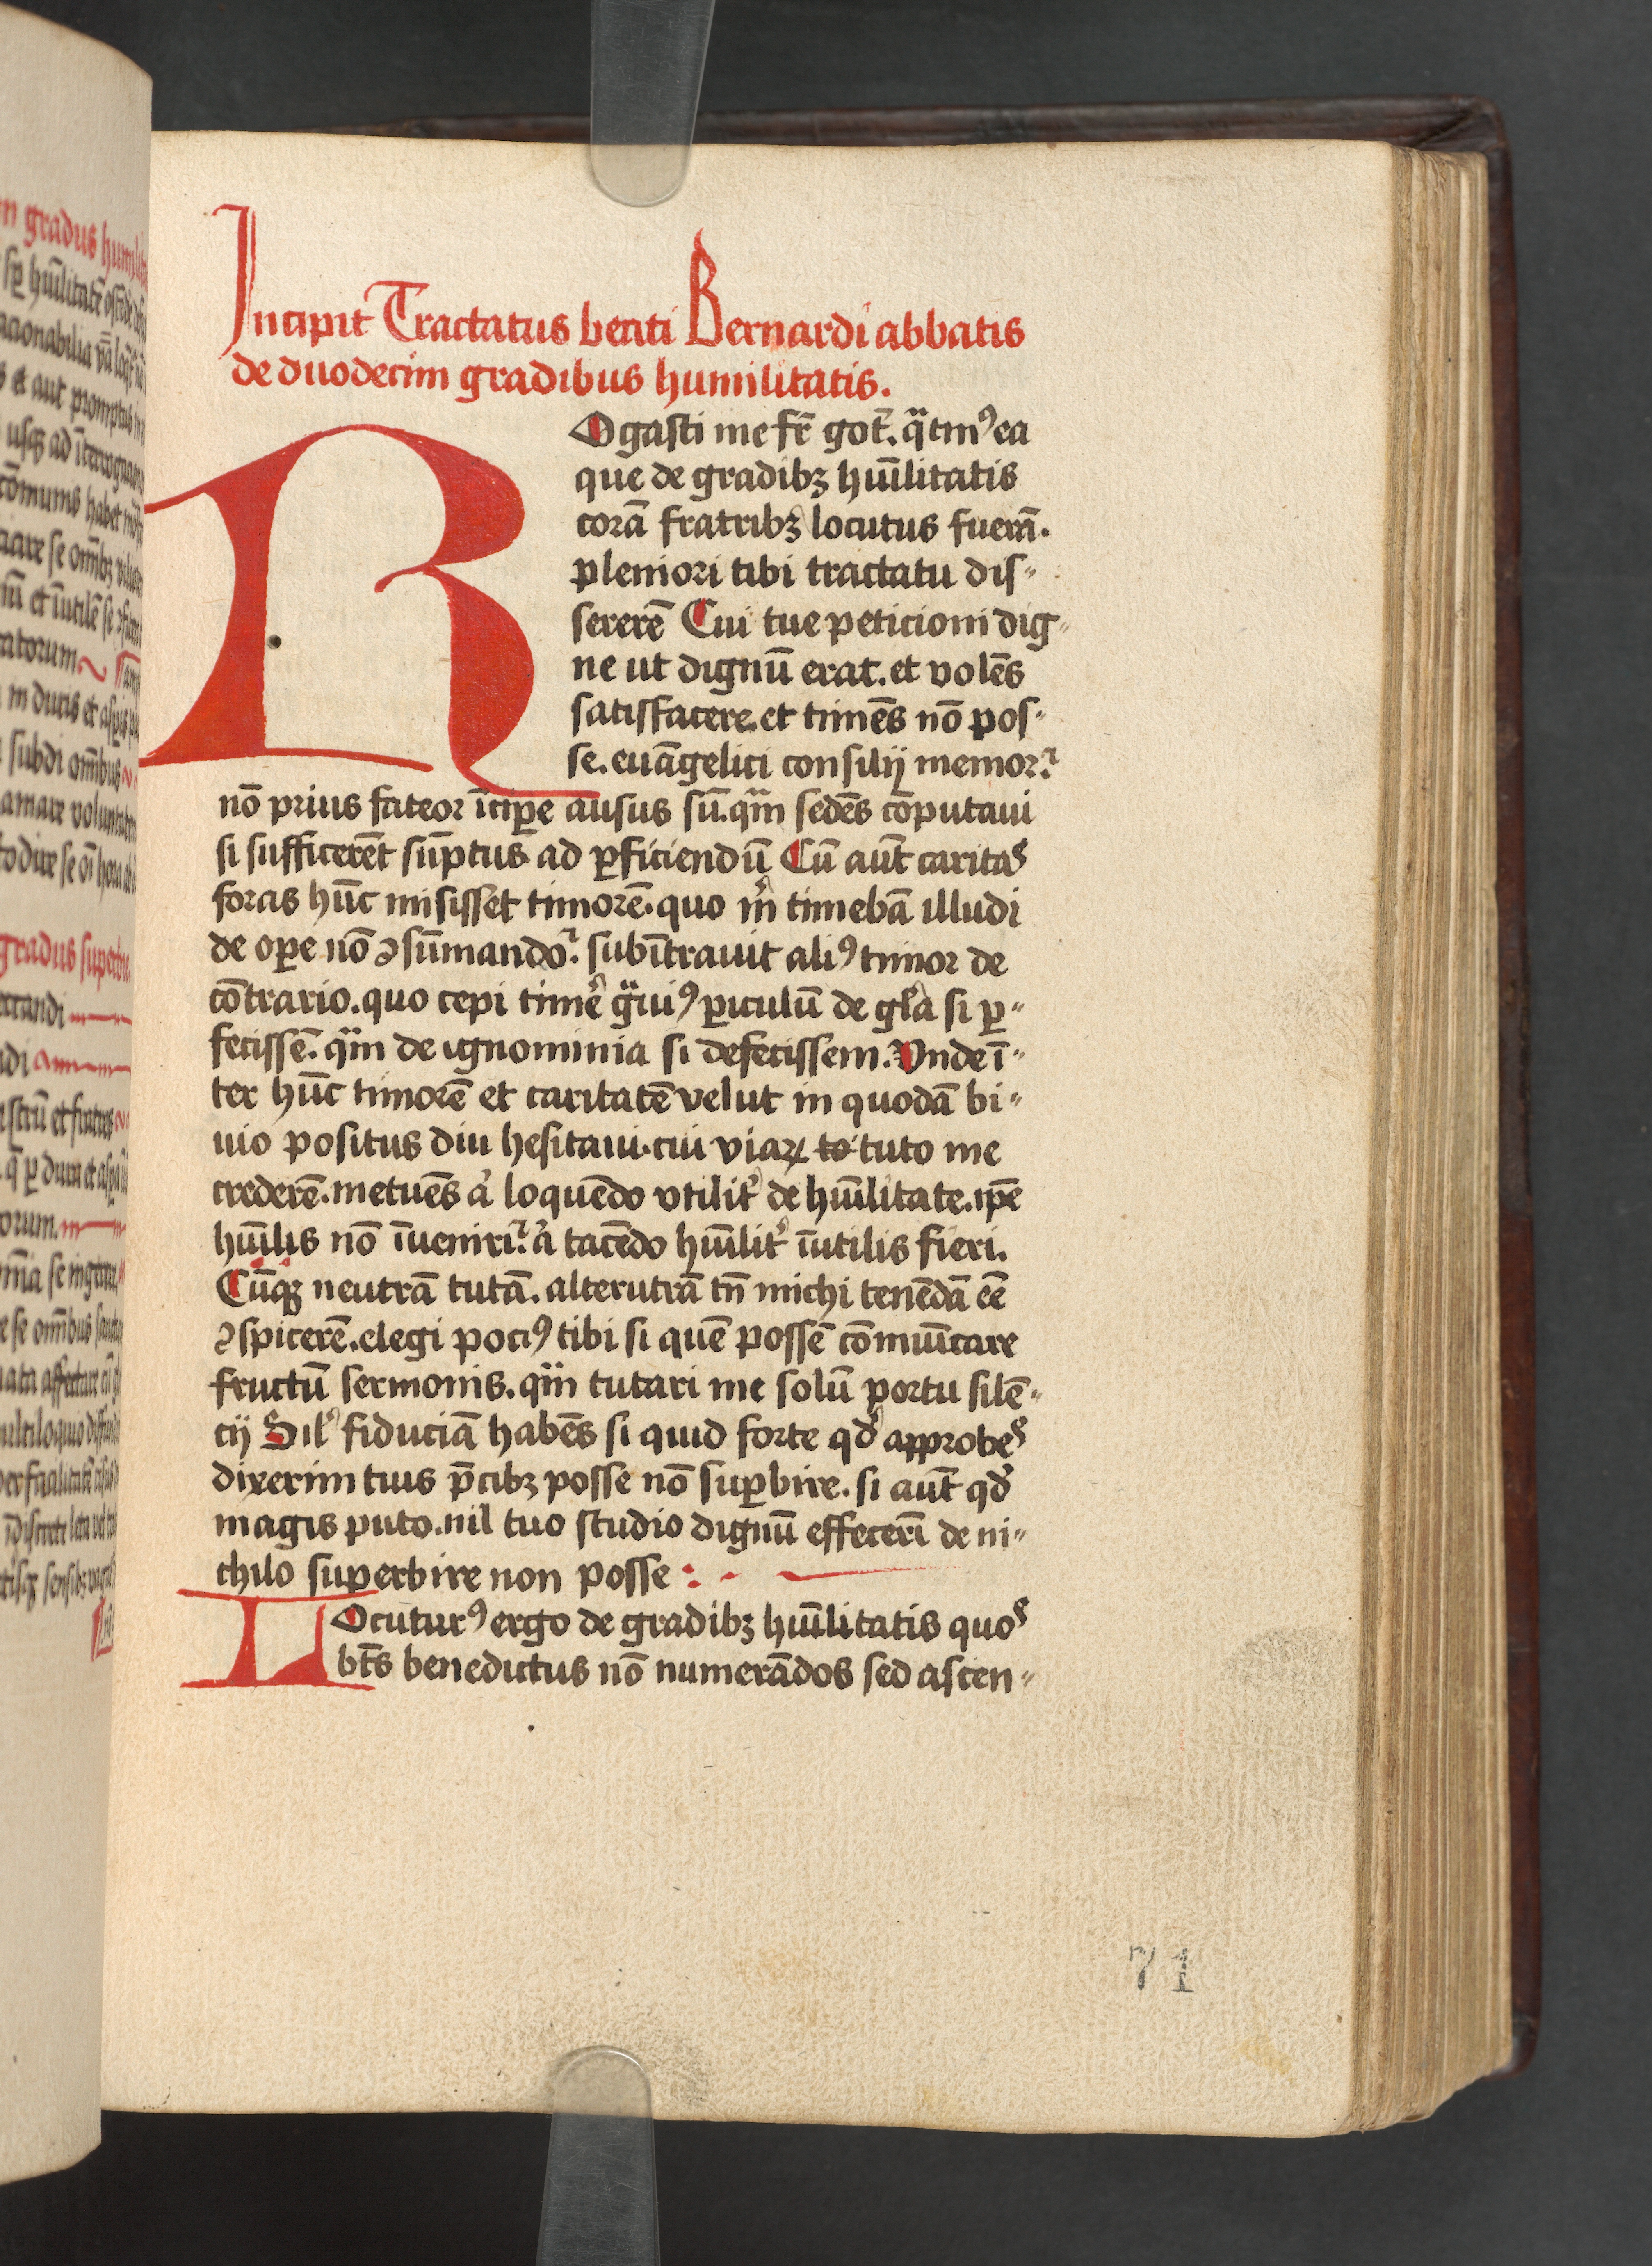 Incipit Tractatus beati Bernardi abbatis
de duodecim gradibus humilitatis.
ROgasti me fr̄ got̄. qͣtmꝰ ea
que de gradibꝫ hūīlitatis
corā fratribꝫ locutus fuerā.
pleniori tibi tractatu dis-
sererē Cui tue peticioni dig-
ne ut dignū erat. et volēs
satisfacere. et timēs nō pos-
se. euāgelici consilij memor.
nō prius fateor īciꝑe ausus sū. qͣm sedēs cōputaui
si sufficerēt sūptus ad ꝑficiendū Cū aūt caritas
foras hūc misisset timorē. quo m̄ timebā illudi
de oꝑe nō ꝯsūmando. subītrauit aliꝰ timor de
cōtrario. quo cepi timē gͣuiꝰ ꝑiculū de gl̄a si ꝑ-
fecissē. qͣm de ignominia si defecissem. Vnde ī-
ter hūc timorē et caritatē velut in quodā bi-
uio positus diu hesitaui. cui viaꝝ to tuto me
crederē. metuēs a᷒ loquēdo vtilit᷒ de hūīlitate. ip̄e
hūīlis nō īueniri. a᷒ tacēdo hūīlit᷒ īutilis fieri.
Cūqꝫ neutrā tutā. alterutrā tn̄ michi tenēdā eē
ꝯspicerē. elegi pociꝰ tibi si quē possē cōmūīcare
fructū sermonis. qͣm tutari me solū portu silē-
cij Sil᷒ fiduciā habēs si quid forte qd᷒ approbes
dixerim tuis p̄cibꝫ posse nō suꝑbire. si aūt qd᷒
magis puto. nil tuo studio dignū effecerī de ni-
chilo superbire non posse :.
LOcuturꝰ ergo de gradibꝫ hūīlitatis quos
bt̄s benedictus nō numerādos sed ascen-
71